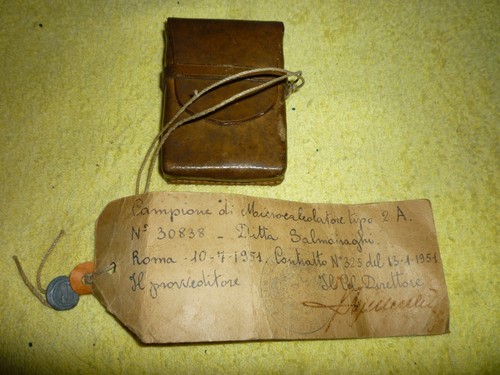 Campione di Microcalcolatore tipo 2 A.
N° 30838 - Ditta Salmoiraghi
Roma - 10-7-1951, Contratto N° 325 del 13-1-1951
Il provveditore Il Col. Direttore